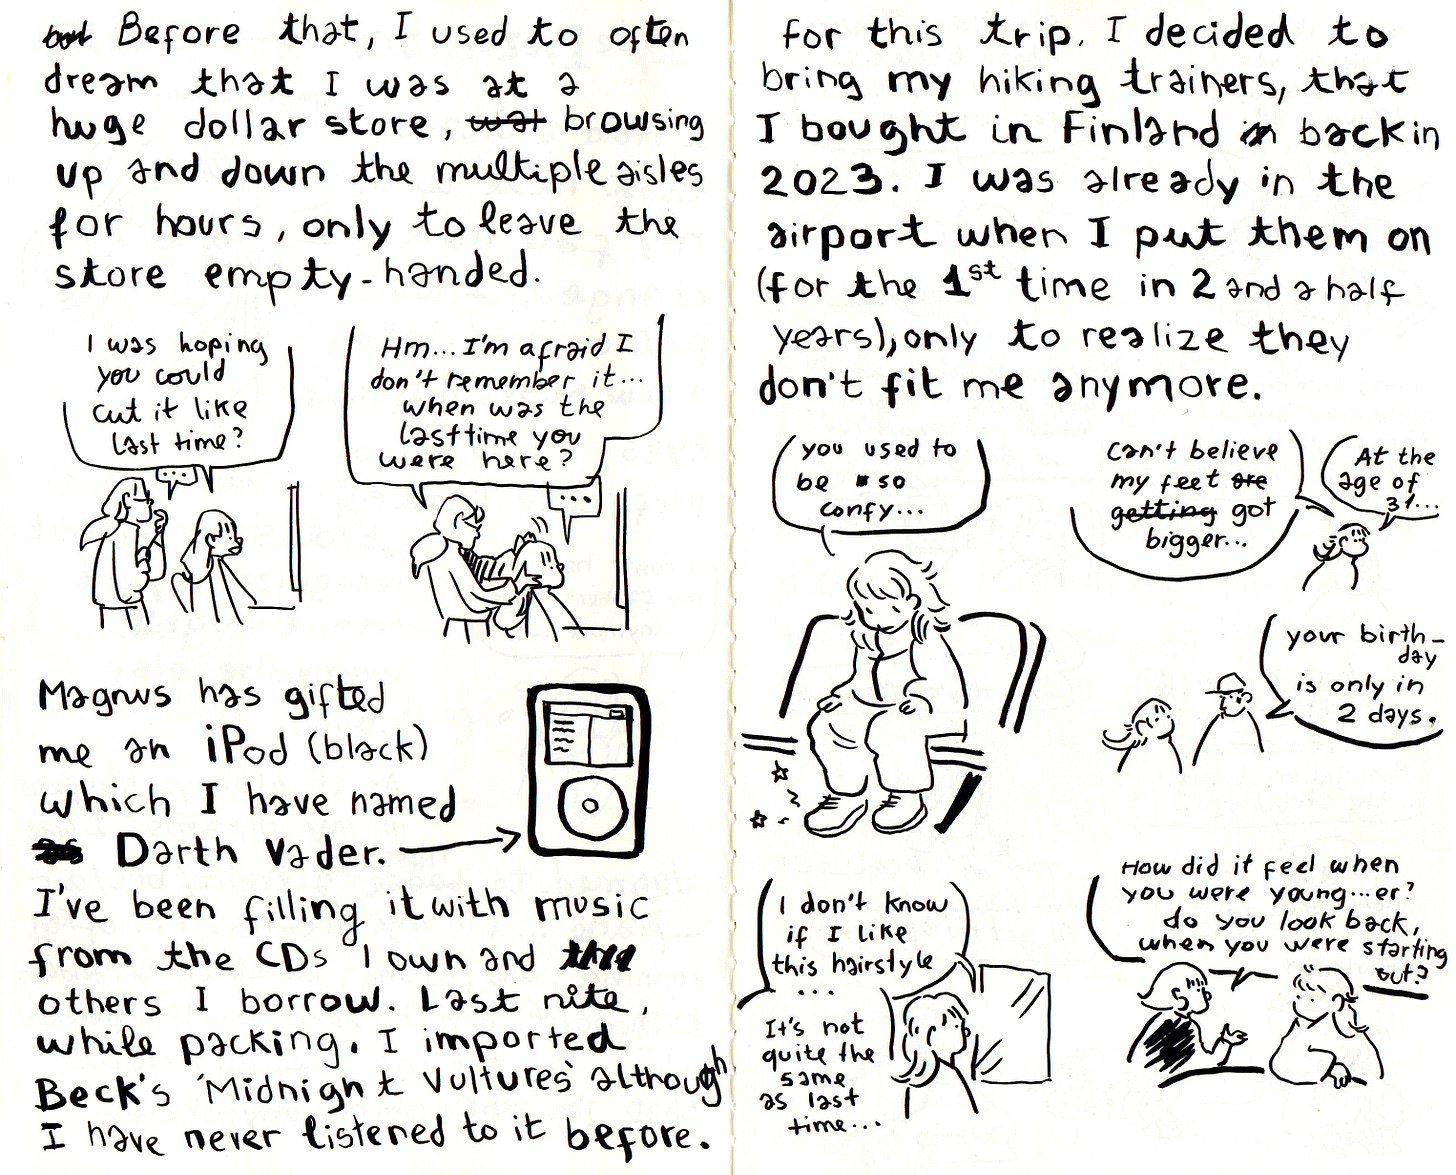 but Before that, I used to often
dream that I was at a
huge dollar store, wat browsing
up and down the multiple aisles
for hours, only to leave the
store empty-handed.
I was hoping
you could
cut it like
last time?
...
Hm... I'm afraid I
don't remember it...
when was the
last time you
were here?
...
Magnus has gifted
me an iPod (black)
which I have named
as Darth Vader.
I've been filling it with music
from the CDs I own and the
others I borrow. Last nite,
while packing, I imported
Beck's 'Midnight Vultures' although
I have never listened to it before.
for this trip. I decided to
bring my hiking trainers, that
I bought in Finland in back in
2023. I was already in the
airport when I put them on
(for the 1st time in 2 and a half
years), only to realize they
don't fit me anymore.
you used to
be so
comfy...
Can't believe
my feet are
getting got
bigger...
At the
age of
31...
your birth-
day
is only in
2 days.
I don't know
if I like
this hairstyle
...
It's not
quite the
same
as last
time...
How did it feel when
you were young...er?
do you look back,
when you were starting
out?